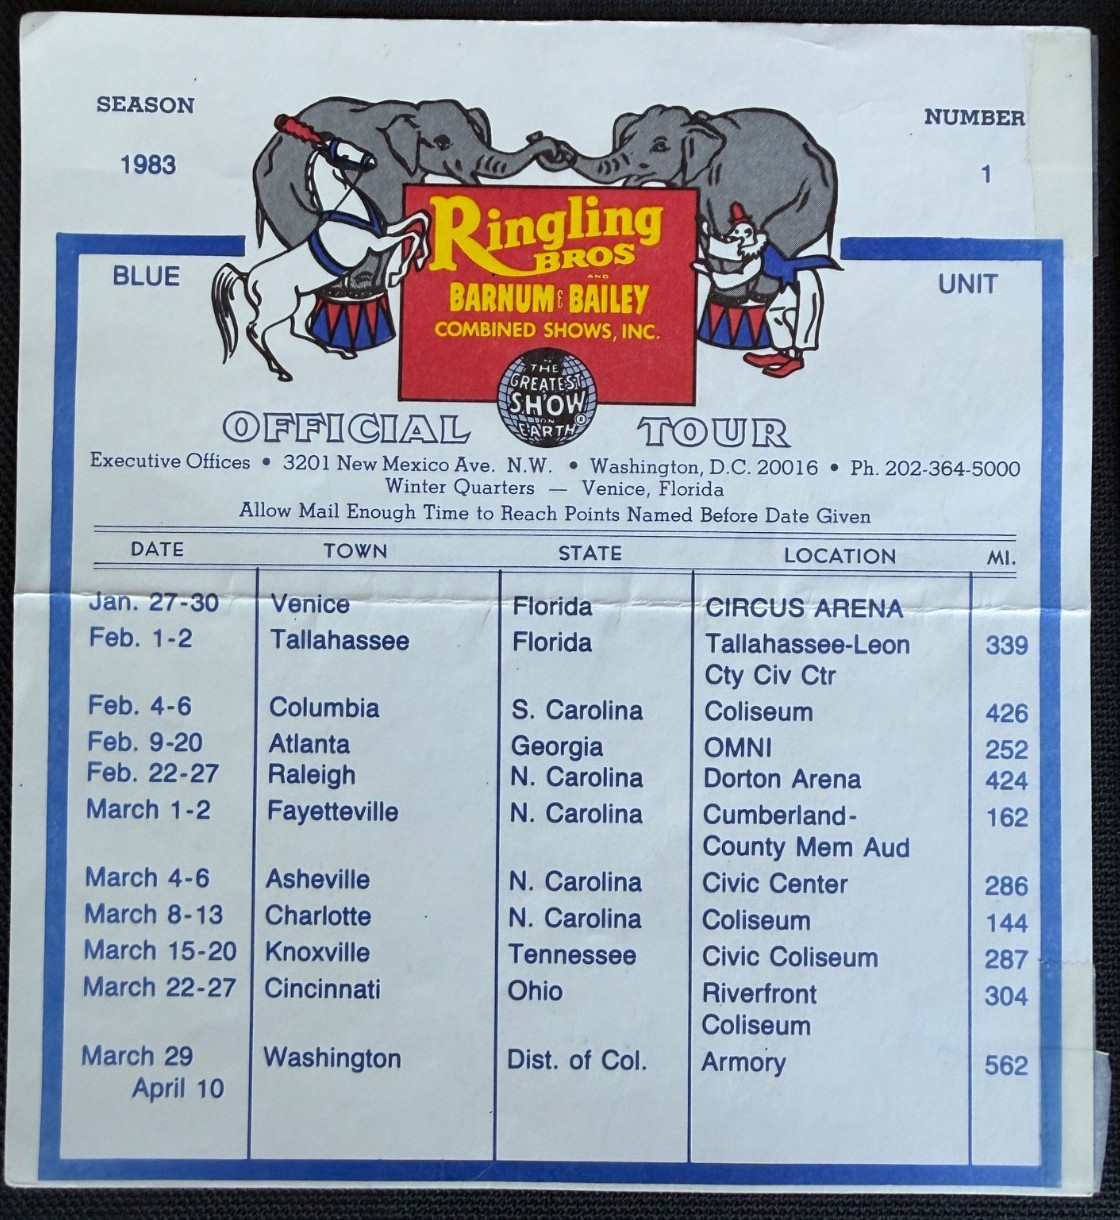 SEASON
NUMBER
1983
1
BLUE
UNIT
Ringling
BROS
AND
BARNUM & BAILEY
COMBINED SHOWS, INC.
THE
GREATEST
SHOW
ON
EARTH®
OFFICIAL TOUR
Executive Offices • 3201 New Mexico Ave. N.W. • Washington, D.C. 20016 • Ph. 202-364-5000
Winter Quarters — Venice, Florida
Allow Mail Enough Time to Reach Points Named Before Date Given
DATE TOWN STATE LOCATION MI.
Jan. 27-30 Venice Florida CIRCUS ARENA
Feb. 1-2 Tallahassee Florida Tallahassee-Leon 339
Cty Civ Ctr
Feb. 4-6 Columbia S. Carolina Coliseum 426
Feb. 9-20 Atlanta Georgia OMNI 252
Feb. 22-27 Raleigh N. Carolina Dorton Arena 424
March 1-2 Fayetteville N. Carolina Cumberland- 162
County Mem Aud
March 4-6 Asheville N. Carolina Civic Center 286
March 8-13 Charlotte N. Carolina Coliseum 144
March 15-20 Knoxville Tennessee Civic Coliseum 287
March 22-27 Cincinnati Ohio Riverfront 304
Coliseum
March 29 Washington Dist. of Col. Armory 562
April 10